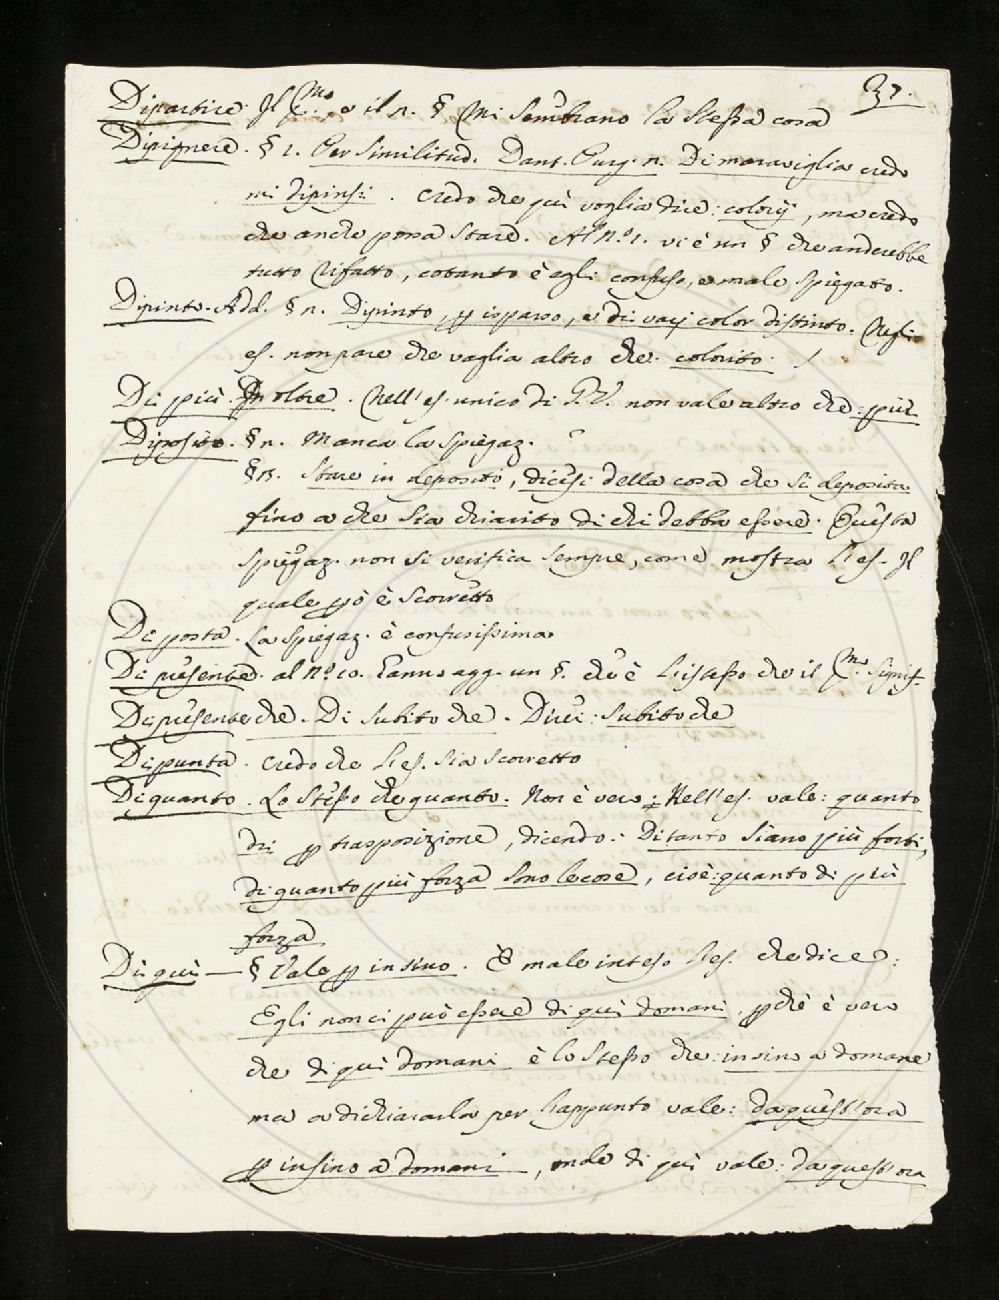 37.
Dipartire. Il C.mo, e il n. § Mi sembrano la stessa cosa
Dipignere. § 1. Per similitud. Dant. Purg. n. Di maraviglia credo
mi dipinsi. Credo che quì voglia dire: colorij, ma credo
che anche possa stare. Al N.o 1. vi è un § che anderebbe
tutto rifatto, cotanto è egli confuso, e male spiegato.
Dipinto. Add. § n. Dipinto, p isparso, e di varj color distinto. Negli
es. non pare che vaglia altro che: colorito.
Di più. Inoltre. Nell'es. unico di G. V. non vale altro che: più
Diposito. § n. Manca la spiegaz.
§ n. Stare in deposito, dicesi della cosa che si deposita
fino a che sia chiarito di chi debba essere. Questa
spiegaz. non si verifica sempre, come mostra l'es. Il
quale pò è scorretto
Di posta. La spiegaz. è confusissima
Di presente. al N.o 10. Fanno agg. un §. che è l'istesso che il C.mo signif.
Di presente che. Di subito che. Direi: subito che
Di punta. Credo che l'es. sia scorretto
Di quanto. Lo stesso che quanto. Non è vero: Nell'es. vale: quanto
di p trasposizione, dicendo: Di tanto siano più forti,
di quanto più forza sono le cose, cioè: quanto di più
forza
Di quì — § Vale p insino. È male inteso l'es. che dice:
Egli non ci può essere di quì domani, pchè è vero
che di quì domani è lo stesso che: insino a domane
ma a dichiararla per l'appunto vale: da quest'ora
p insino a domani, male di quì vale: da quest'ora